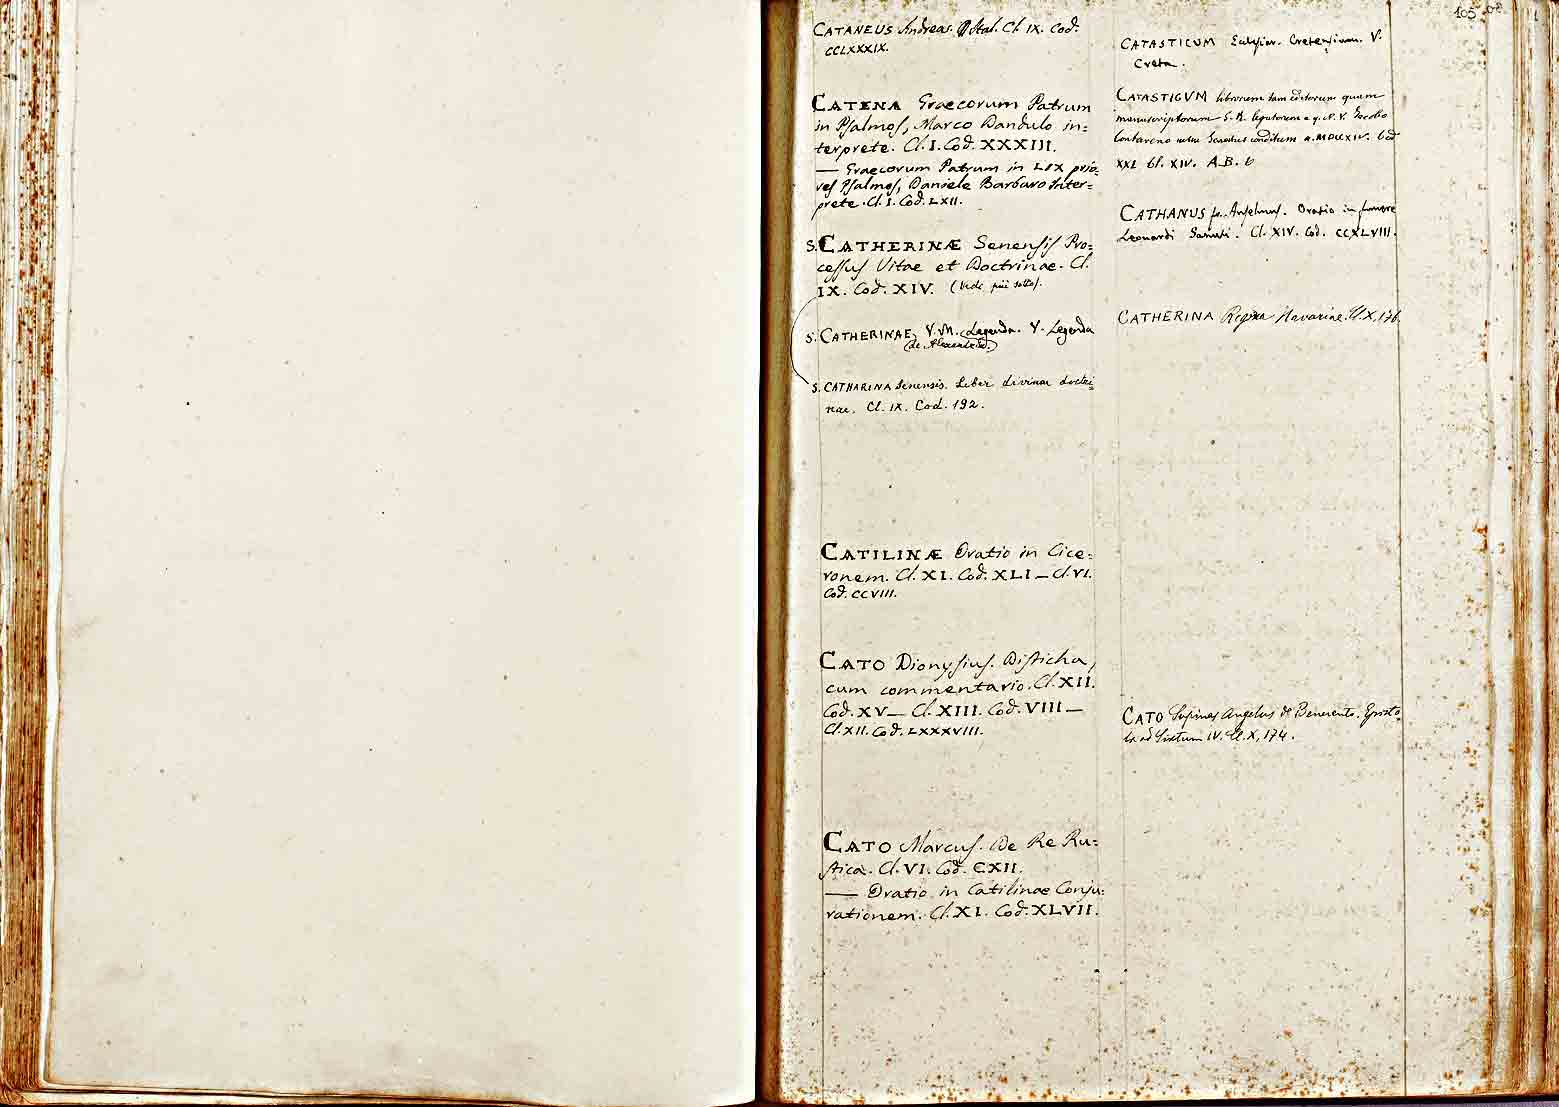 105
CATANEUS Andreas. Ital. Cl. IX. Cod.
CCLXXXIX.
CATENA Graecorum Patrum
in Psalmos, Marco Dandulo in=
terprete. Cl. I. Cod. XXXIII.
— Graecorum Patrum in LIX prio=
res Psalmos, Daniele Barbaro Inter=
prete. Cl. I. Cod. LXII.
S. CATHERINÆ Senensis Pro=
cessus Vitae et Doctrinae. Cl.
IX. Cod. XIV. (Vide più sotto).
S. CATHERINAE, V. M. Legenda. V. Legenda
(de Alexandria.)
S. CATHARINA Senensis. Liber divinae doctri=
nae. Cl. IX. Cod. 192.
CATILINÆ Oratio in Cice=
ronem. Cl. XI. Cod. XLI — Cl. VI.
Cod. CCVIII.
CATO Dionysius. Disticha,
cum commentario. Cl. XII.
Cod. XV — Cl. XIII. Cod. VIII —
Cl. XII. Cod. LXXXVIII.
CATO Marcus. De Re Ru=
stica. Cl. VI. Cod. CXII.
— Oratio in Catilinae Conju=
rationem. Cl. XI. Cod. XLVII.
CATASTICUM Eccles̄iar. Cretensium. V.
Creta.
CATASTICVM librorum tam editorum quam
manuscriptorum S. R. legatorum a q. N. V. Jacobo
Contareno Senatus conditum a. MDCCXIV. Cod
XXI Cl. XIV. A. B.
CATHANUS fr. Anselmus. Oratio in funere
Leonardi Sanuti. Cl. XIV. Cod. CCXLVIII.
CATHERINA Regina Navarrae. Cl. X, 176.
CATO Supinus Angelus de Benevento. Episto
la ad Sixtum IV. Cl. X, 174.